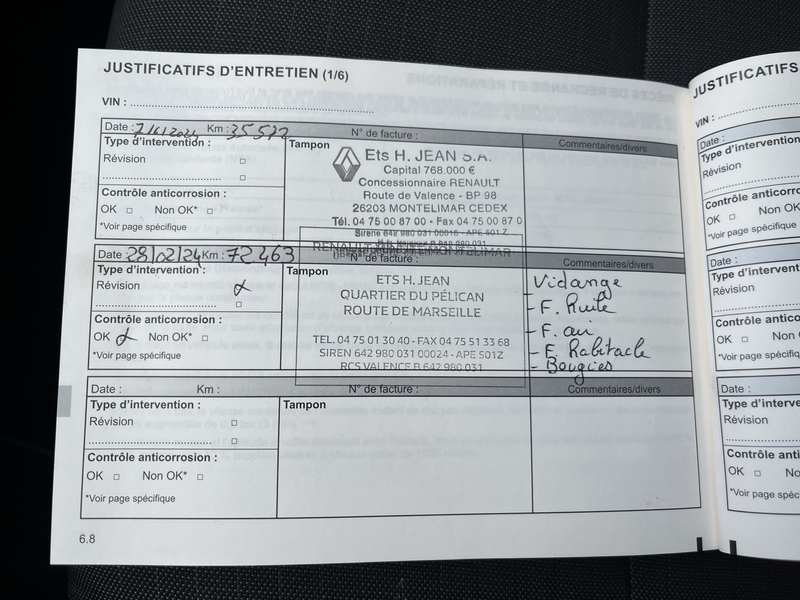 JUSTIFICATIFS D'ENTRETIEN (1/6)
VIN :
Date : Km : 35 522 N° de facture : Commentaires/divers
Type d'intervention :
Révision
Contrôle anticorrosion :
OK Non OK*
*Voir page spécifique
Tampon
Ets H. JEAN S.A.
Capital 768.000 €
Concessionnaire RENAULT
Route de Valence - BP 98
26203 MONTELIMAR CEDEX
Tél. 04 75 00 87 00 - Fax 04 75 00 87 0
Sirene 642 980 031 00016 - APE 501 Z
RENAULT MONTELIMAR
Date : 28/02/24 Km : 72 463 N° de facture : Commentaires/divers
Type d'intervention :
Révision
Contrôle anticorrosion :
OK Non OK*
*Voir page spécifique
Tampon
ETS H. JEAN
QUARTIER DU PÉLICAN
ROUTE DE MARSEILLE
TEL. 04 75 01 30 40 - FAX 04 75 51 33 68
SIREN 642 980 031 00024 - APE 501Z
RCS VALENCE B 642 980 031
Vidange
- F. Huile
- F. air
- F. Habitacle
- Bougies
Date : Km : N° de facture : Commentaires/divers
Type d'intervention :
Révision
Contrôle anticorrosion :
OK Non OK*
*Voir page spécifique
Tampon
6.8
JUSTIFICATIFS
VIN :
Date :
Type d'intervention
Révision
Contrôle anticorro
OK Non OK*
*Voir page spécifique
Date :
Type d'interven
Révision
Contrôle antico
OK Non
*Voir page spécifi
Date :
Type d'interve
Révision
Contrôle anti
OK No
*Voir page spéc